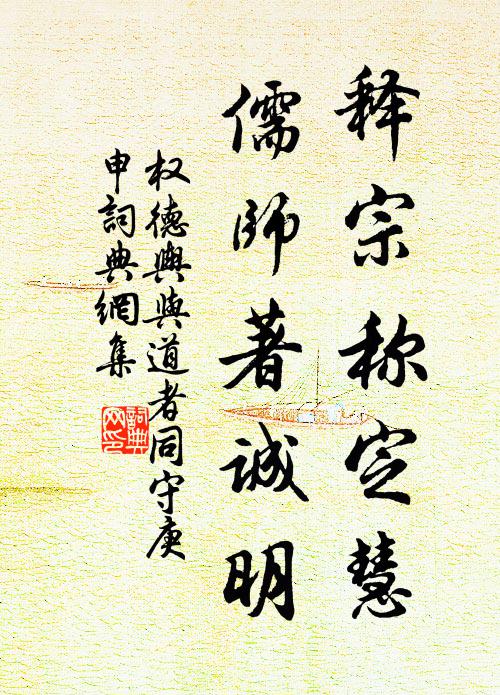 释宗称定慧
儒师著诚明
权德舆与道者同守庚
申詞典網集
詞典
网印